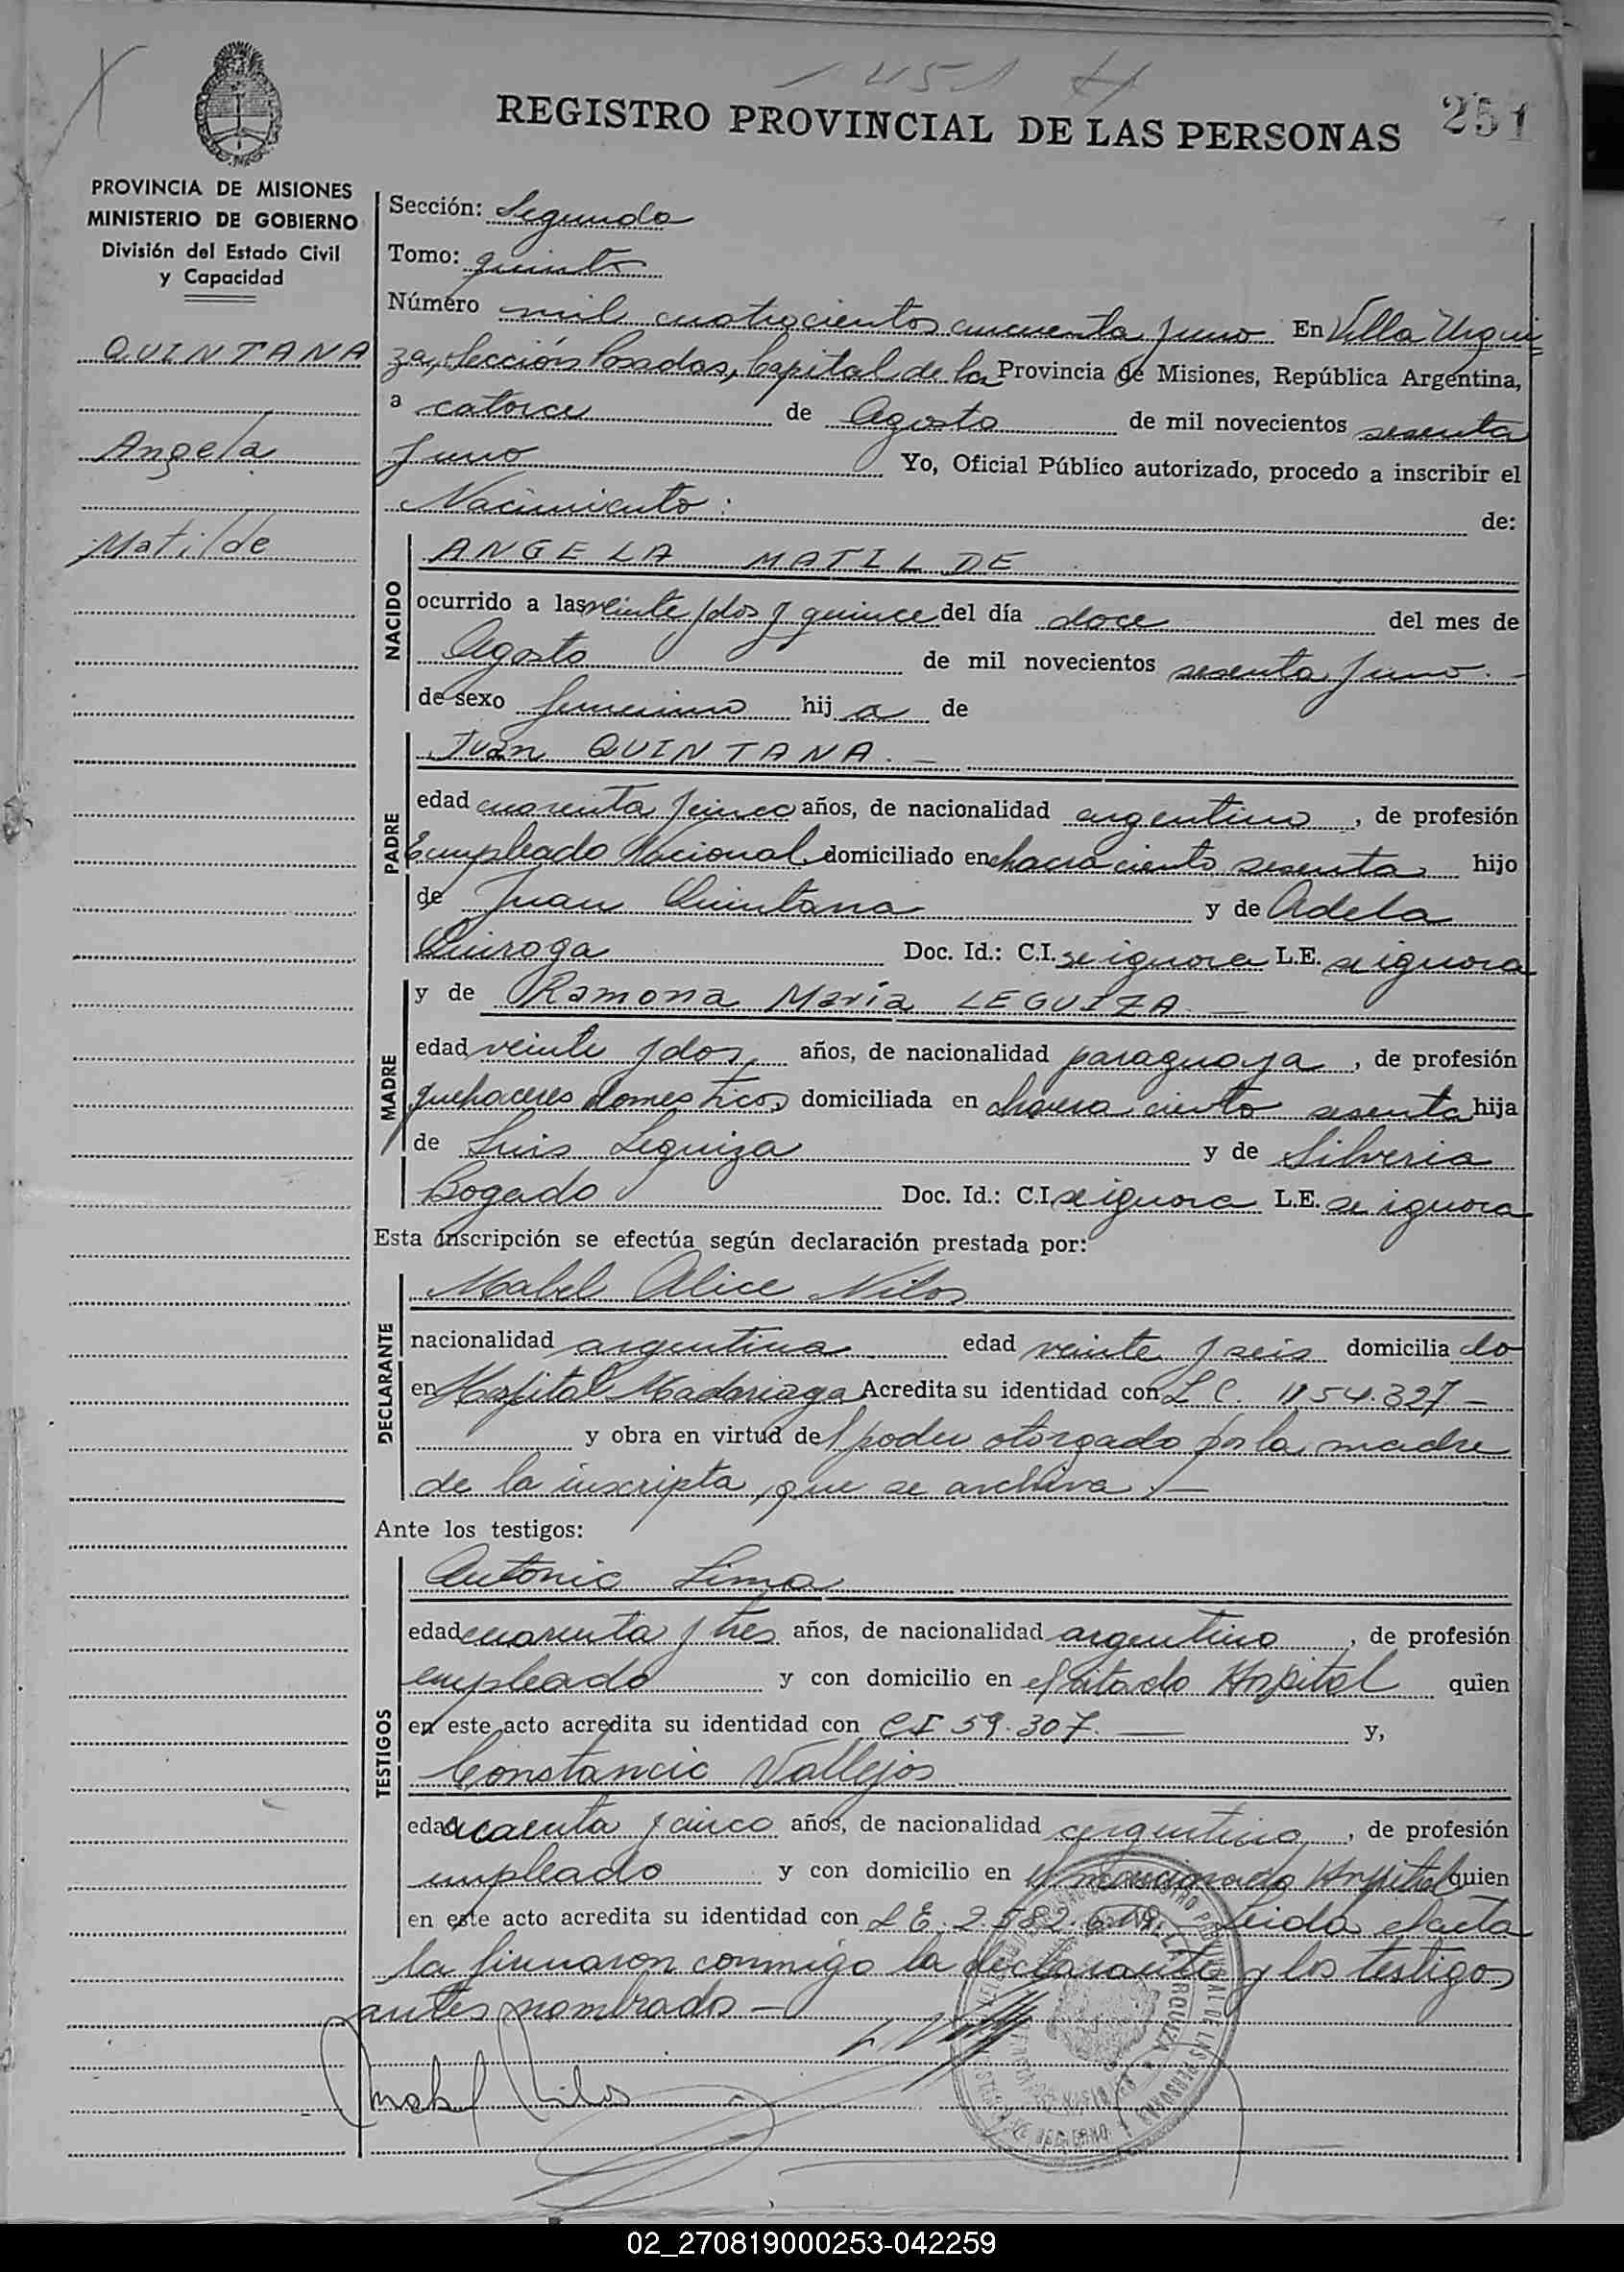 1451 H
REGISTRO PROVINCIAL DE LAS PERSONAS 251
PROVINCIA DE MISIONES
MINISTERIO DE GOBIERNO
División del Estado Civil
y Capacidad
QUINTANA
Angela
Matilde
Sección: Segunda
Tomo: quinto
Número mil cuatrocientos cincuenta y uno En Villa Urqui-
za, Sección Posadas, Capital de la Provincia de Misiones, República Argentina,
a catorce de Agosto de mil novecientos sesenta
y uno Yo, Oficial Público autorizado, procedo a inscribir el
Nacimiento: de:
NACIDO
ANGELA MATILDE
ocurrido a las veinte y dos y quince del día doce del mes de
Agosto de mil novecientos sesenta y uno.-
de sexo femenino hij a de
PADRE
Juan QUINTANA.-
edad cuarenta y cinco años, de nacionalidad argentino, de profesión
Empleado Nacional domiciliado en chacra ciento sesenta hijo
de Juan Quintana y de Adela
Quiroga Doc. Id.: C.I. se ignora L.E. se ignora
MADRE
y de Ramona María LEGUIZA.-
edad veinte y dos años, de nacionalidad paraguaya, de profesión
quehaceres domesticos domiciliada en chacra ciento sesenta hija
de Luis Leguiza y de Silveria
Bogado Doc. Id.: C.I. se ignora L.E. se ignora
Esta inscripción se efectúa según declaración prestada por:
DECLARANTE
Mabel Alice Nilos
nacionalidad argentina edad veinte y seis domicilia do
en Hospital Madariaga Acredita su identidad con L C. 1.154.327-
y obra en virtud del poder otorgado por la madre
de la inscripta, que se archiva.-
Ante los testigos:
TESTIGOS
Antonio Lima
edad cuarenta y tres años, de nacionalidad argentino, de profesión
empleado y con domicilio en el citado Hospital quien
en este acto acredita su identidad con CI 59.307.- y,
Constancio Vallejos
edad cuarenta y cinco años, de nacionalidad argentino, de profesión
empleado y con domicilio en el mencionado Hospital quien
en este acto acredita su identidad con L E. 2.582. Leida el acta
la firmaron conmigo la declarante y los testigos
antes nombrados-
Mabel Nilos
02_270819000253-042259